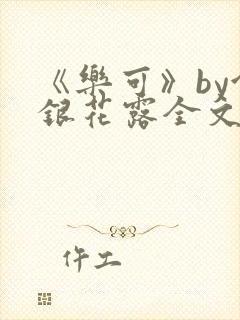 《樂可》by
銀花露全文
仵工